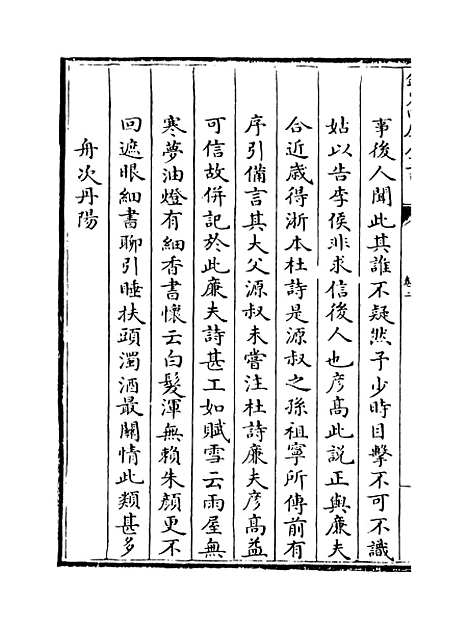 事後人聞此其誰不疑然予少時目擊不可不識
姑以告李侯非求信後人也彦髙此説正與廉夫
合近嵗得浙本杜詩是源叔之孫祖寧所傳前有
序引備言其大父源叔未嘗注杜詩廉夫彦髙益
可信故併記於此廉夫詩甚工如賦雪云雨屋無
寒夢油燈有細香書懷云白髮渾無賴朱顔更不
回遮眼細書聊引睡扶頭濁酒最關情此類甚多
舟次丹陽
卷二